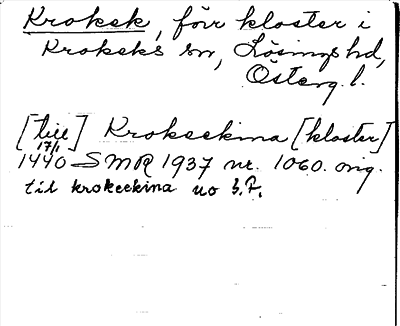 Krokek, förr kloster i
Krokeks sn, Lösings hd,
Österg. l.
[till] Krokeekina [kloster]
17/1
1440 SMR 1937 nr. 1060. orig.
til krokeekina uo s.F.